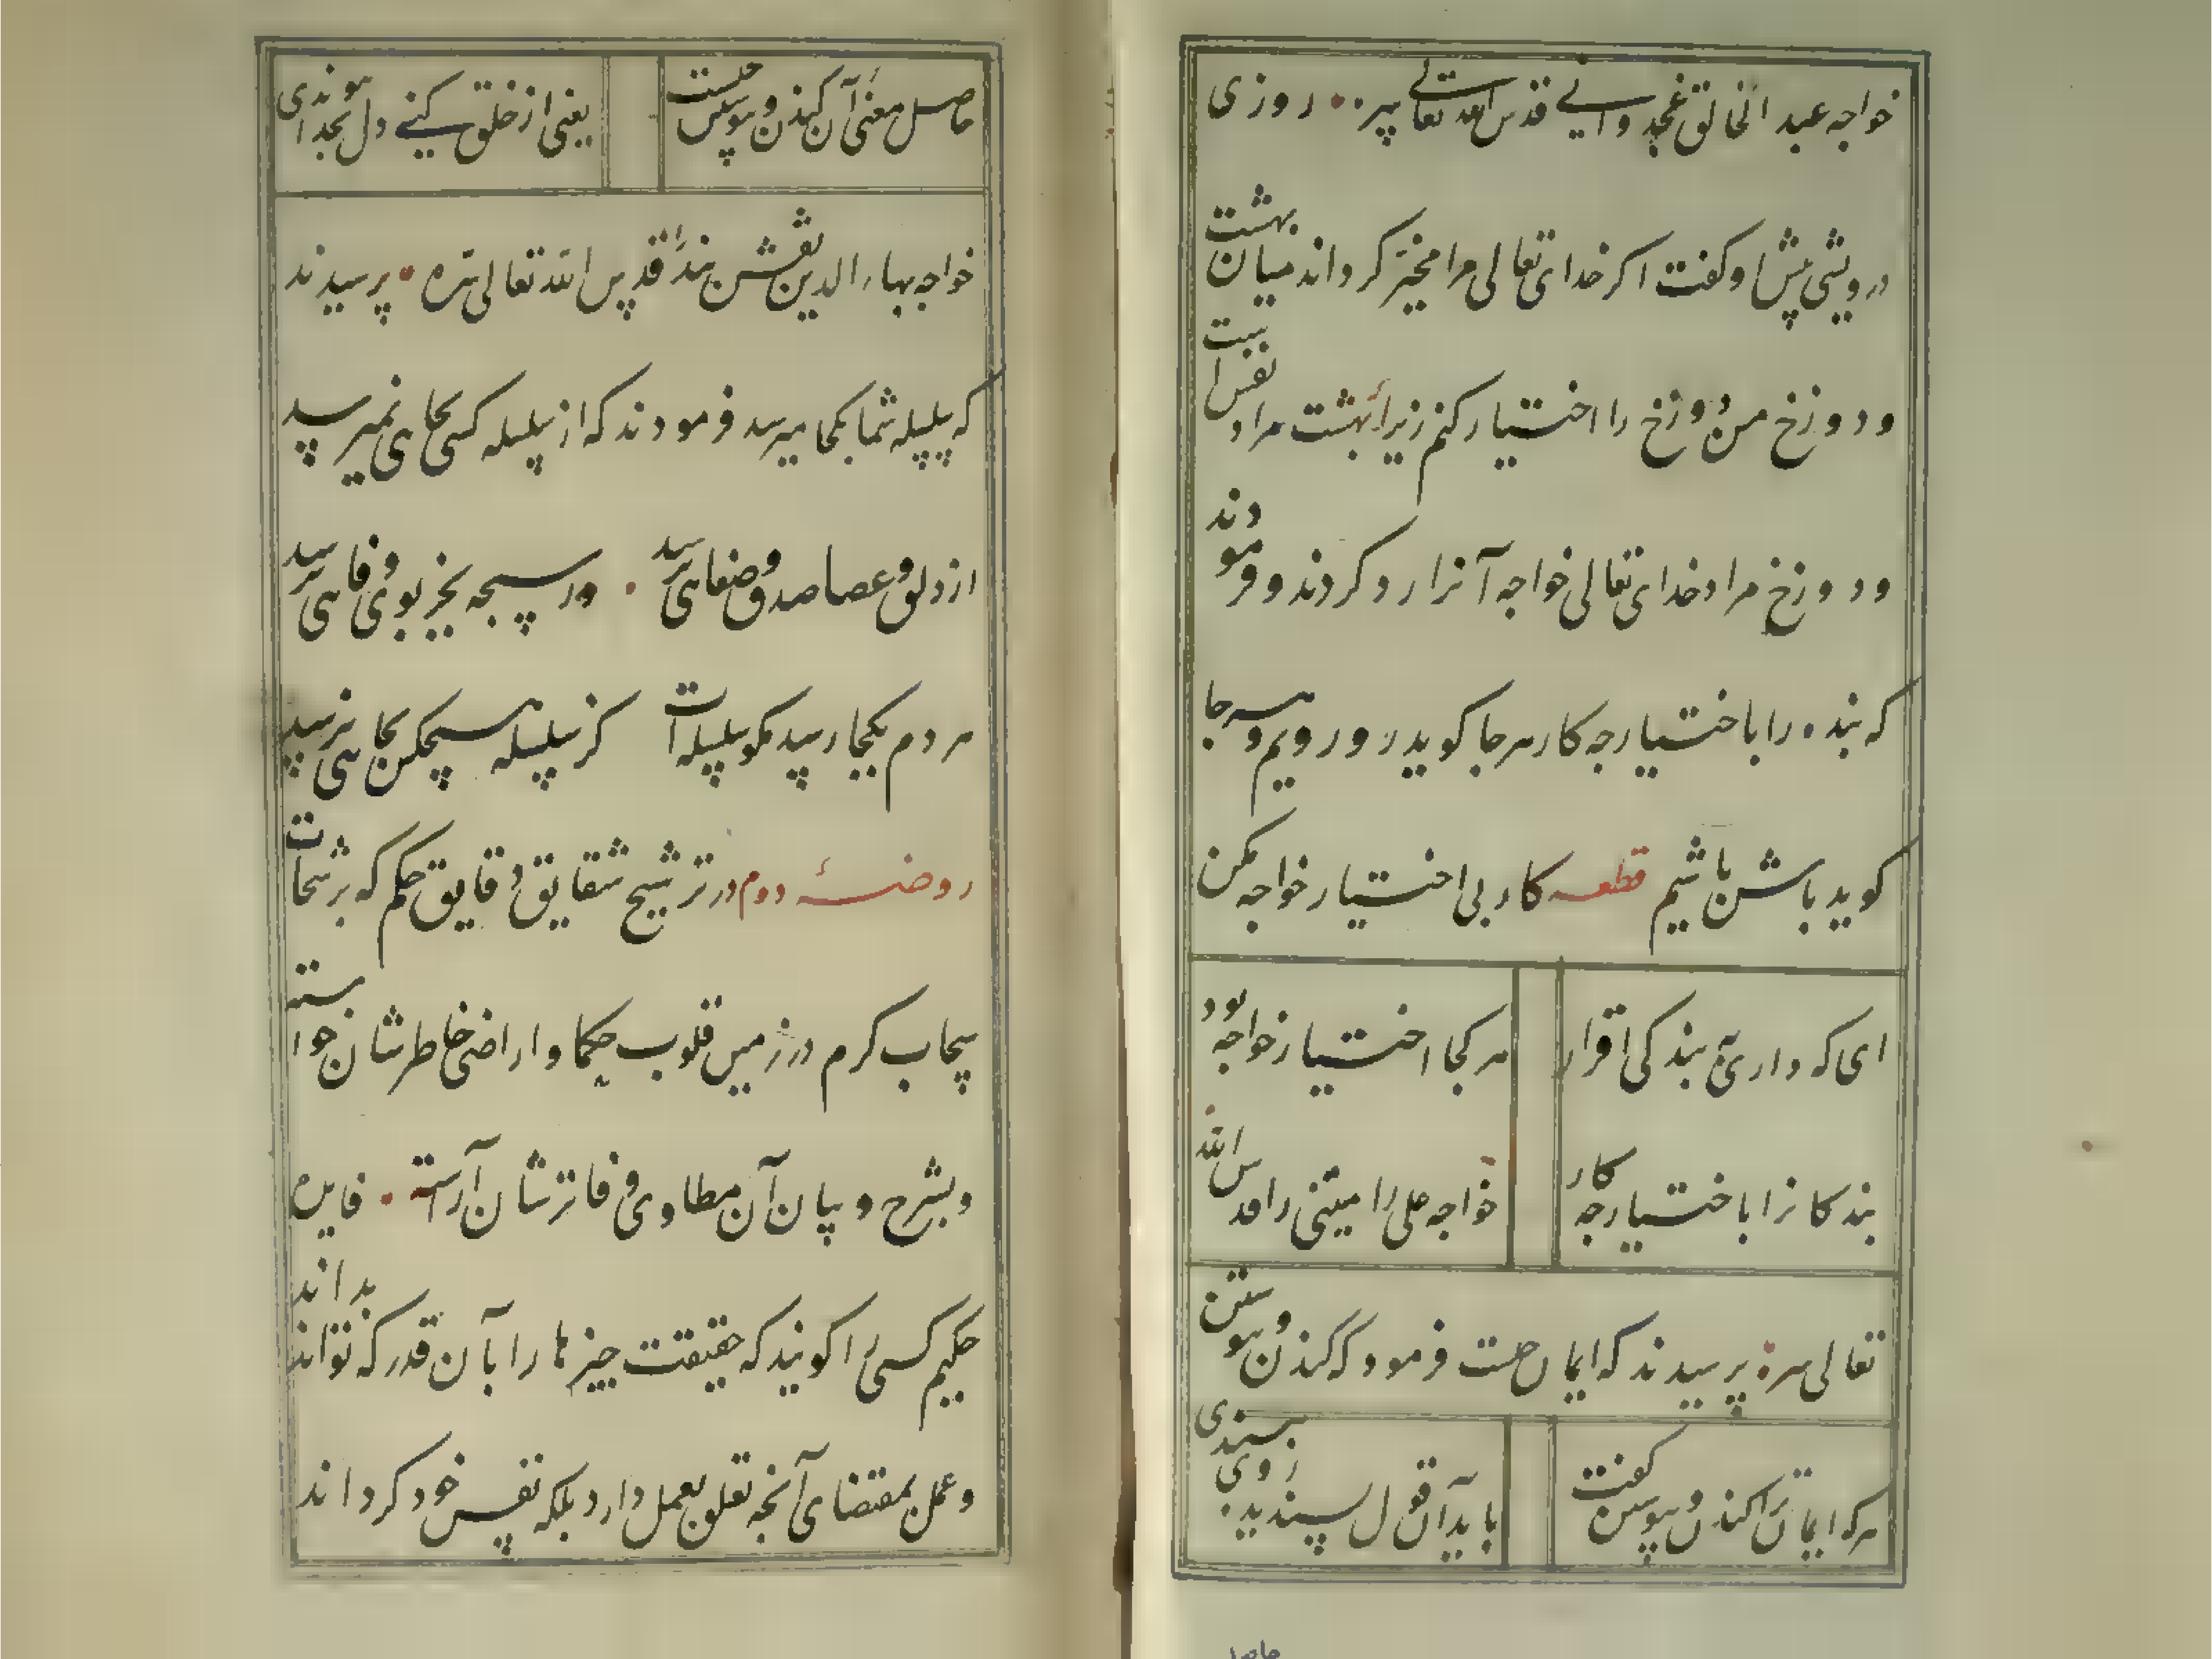 خواجه عبد الخالق غجدوانی قدس الله تعالی سره روزی
درویشی پیش او گفت اکر خدای تعالی مرا مخیر کرداند میان بهشت
و دوزخ من دوزخ را اختیار کنم زیرا بهشت مراد نفس است
و دوزخ مراد خدای تعالی خواجه آنرا رد کردند و فرمودند
که بنده را با اختیار چه کار هر جا کوید رو رویم و هر جا
کوید باش باشیم قطعه کار بی اختیار خواجه مکن
ای که داری به بندکی اقرار هر کجا اختیار خواجه بود
بندکانرا با اختیار چه کار خواجه علی رامیتنی را قدس الله
تعالی سره پرسیدند که ایمان چیست فرمود که کندن و پیوستن
هر که ایمانرا کندن و پیوستن کفت باید آن قول پسندید
حاصل معنی آن کندن و پیوستن چیست یعنی از خلق کنی دل بخدا پیوندی
خواجه بهاء الدین نقشبند را قدس الله تعالی سره پرسیدند
که سلسله شما بکجا میرسد فرمودند که از سلسله کسی بجای نمیرسد
از دلق و عصا صدق و صفای نرسد وز سبحه بجز بوی ریای نرسد
هر دم بکجا رسید مکو سلسله ات کز سلسله هیچکس بجای نرسید
روضهٔ دوم در ترشیح شقایق دقایق حکم که برشحات
سحاب کرم در زمین قلوب حکما و اراضی خاطرشان خواسته
و بشرح و بیان آن مطاوی دفاترشان آراسته فایده
حکیم کسی را کویند که حقیقت چیزها را بآن قدر که تواند بداند
و عمل بمقتضای آنچه تعلق بعمل دارد ملکه نفس خود کرداند